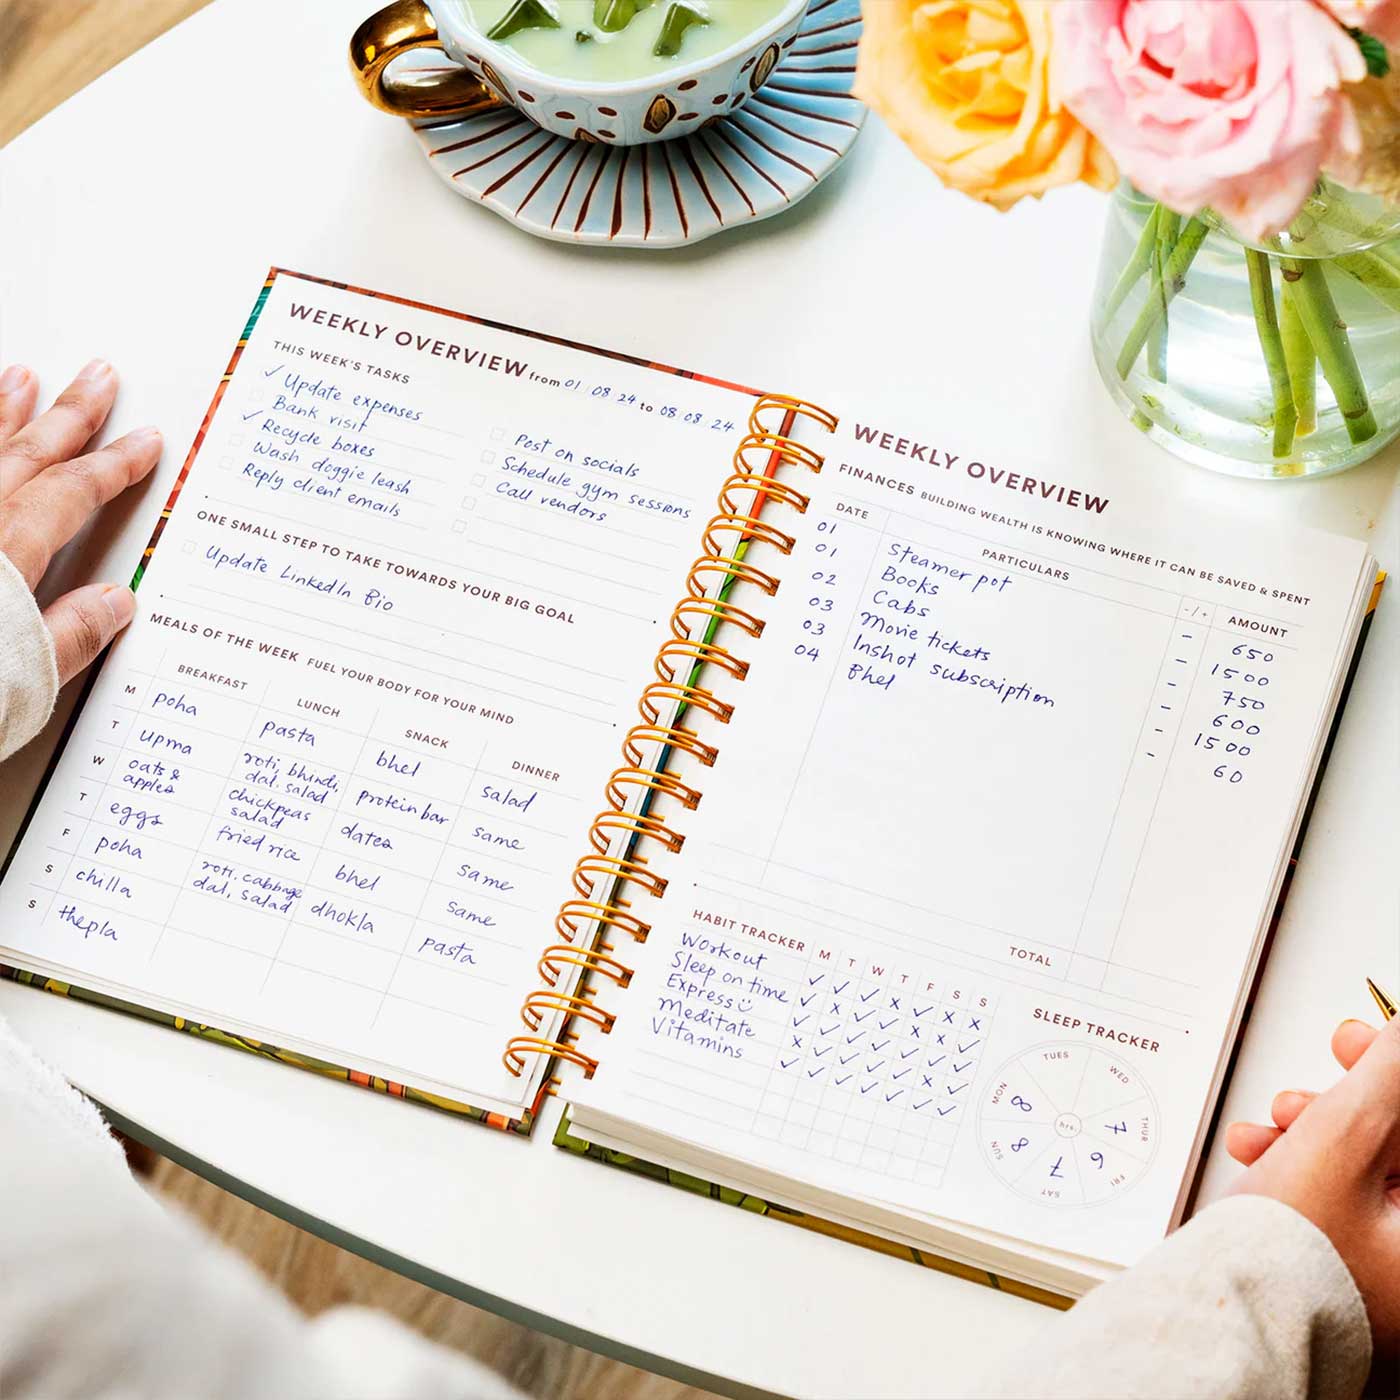 WEEKLY OVERVIEW from 01 / 08 / 24 to 08 / 08 / 24
THIS WEEK'S TASKS
✓ Update expenses
Bank visit
✓ Recycle boxes
Wash doggie leash
Reply client emails
Post on socials
Schedule gym sessions
Call vendors
ONE SMALL STEP TO TAKE TOWARDS YOUR BIG GOAL
Update LinkedIn Bio
MEALS OF THE WEEK FUEL YOUR BODY FOR YOUR MIND
BREAKFAST LUNCH SNACK DINNER
M poha pasta bhel salad
T upma roti, bhindi, dal, salad protein bar same
W oats & apples chickpeas salad dates same
T eggs fried rice bhel same
F poha roti, cabbage dal, salad dhokla pasta
S chilla
S thepla
WEEKLY OVERVIEW
FINANCES BUILDING WEALTH IS KNOWING WHERE IT CAN BE SAVED & SPENT
DATE PARTICULARS -/+ AMOUNT
01 Steamer pot - 650
01 Books - 1500
02 Cabs - 750
03 Movie tickets - 600
03 Inshot subscription - 1500
04 Bhel - 60
TOTAL
HABIT TRACKER M T W T F S S
Workout ✓ ✓ ✓ x ✓ x x
Sleep on time ✓ x ✓ ✓ x x ✓
Express ☺ ✓ ✓ ✓ ✓ ✓ ✓ ✓
Meditate x ✓ ✓ ✓ ✓ x ✓
Vitamins ✓ ✓ ✓ ✓ ✓ ✓ ✓
SLEEP TRACKER
TUES
WED
THUR 7
FRI 6
SAT 7
SUN 8
MON 8
hrs.